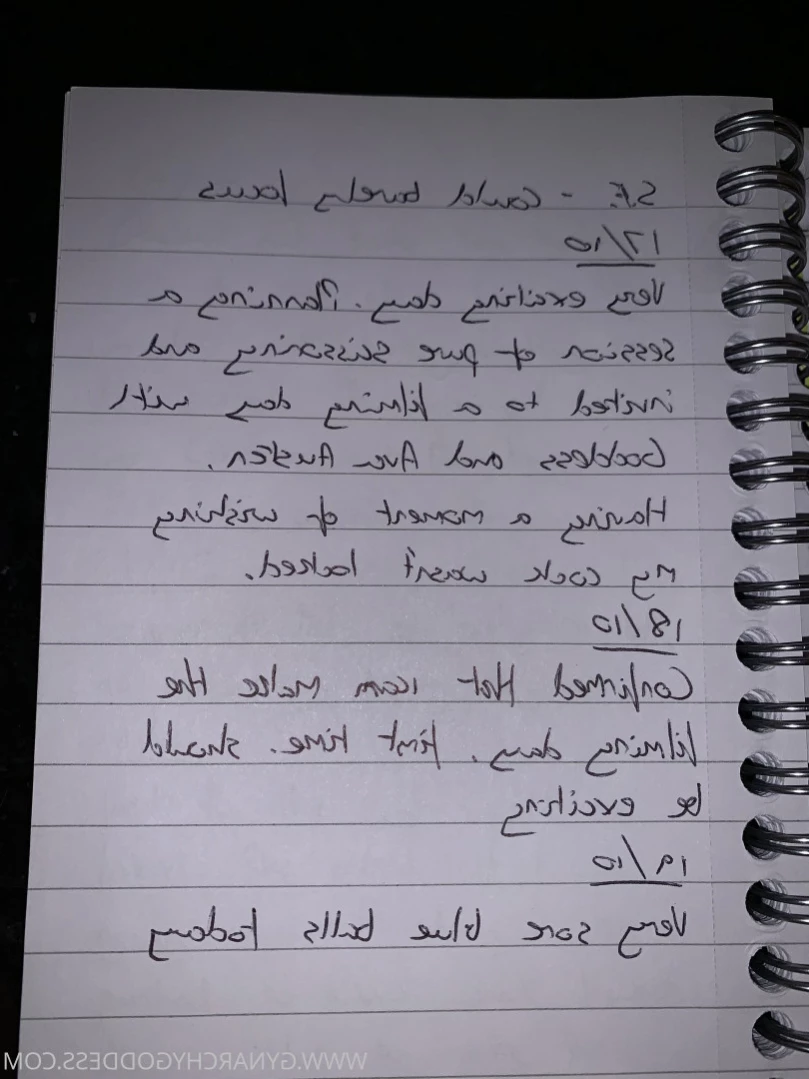 S.F. - could barely focus
17/10
Very exciting day. Planning a
session of pure scissoring and
invited to a filming day with
Goddess and Ava Austen.
Having a moment of wishing
my cock wasn't locked.
18/10
Confirmed that I can make the
filming day. First time. Should
be exciting
19/10
Very sore blue balls today
WWW.GYNARCHYGODDESS.COM